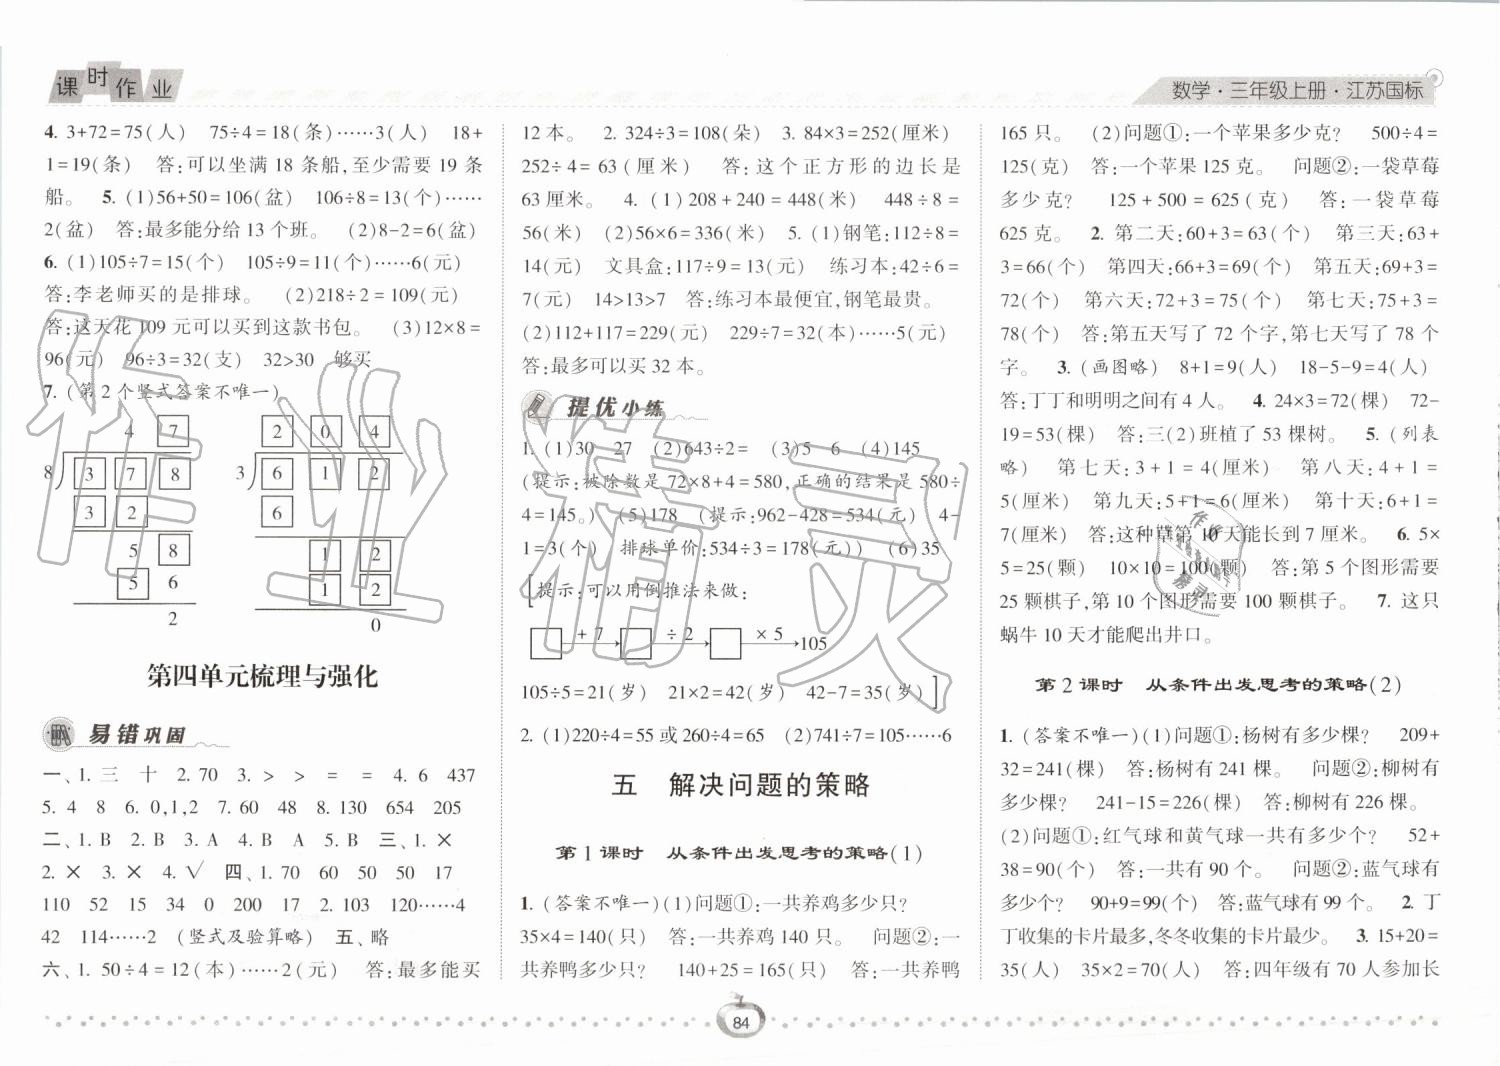 课时作业
数学·三年级上册·江苏国标
4. 3+72=75(人) 75÷4=18(条)……3(人) 18+
1=19(条) 答:可以坐满 18 条船,至少需要 19 条
船。 5. (1)56+50=106(盆) 106÷8=13(个)……
2(盆) 答:最多能分给 13 个班。 (2)8-2=6(盆)
6. (1)105÷7=15(个) 105÷9=11(个)……6(元)
答:李老师买的是排球。 (2)218÷2=109(元)
答:这天花 109 元可以买到这款书包。 (3)12×8=
96(元) 96÷3=32(支) 32>30 够买
7. (第 2 个竖式答案不唯一)
4 7
8 3 7 8
3 2
5 8
5 6
2
2 0 4
3 6 1 2
6
1 2
1 2
0
第四单元梳理与强化
易错巩固
一、1. 三 十 2. 70 3. > > = = 4. 6 437
5. 4 8 6. 0,1,2 7. 60 48 8. 130 654 205
二、1. B 2. B 3. A 4. B A 5. B 三、1. ×
2. × 3. × 4. √ 四、1. 70 60 50 50 17
110 52 15 34 0 200 17 2. 103 120……4
42 114……2 (竖式及验算略) 五、略
六、1. 50÷4=12(本)……2(元) 答:最多能买
12 本。 2. 324÷3=108(朵) 3. 84×3=252(厘米)
252÷4=63(厘米) 答:这个正方形的边长是
63 厘米。 4. (1)208+240=448(米) 448÷8=
56(米) (2)56×6=336(米) 5. (1)钢笔:112÷8=
14(元) 文具盒:117÷9=13(元) 练习本:42÷6=
7(元) 14>13>7 答:练习本最便宜,钢笔最贵。
(2)112+117=229(元) 229÷7=32(本)……5(元)
答:最多可以买 32 本。
提优小练
1. (1)30 27 (2)643÷2= (3)5 6 (4)145
(提示:被除数是 72×8+4=580,正确的结果是 580÷
4=145。) (5)178 (提示:962-428=534(元) 4-
1=3(个) 排球单价:534÷3=178(元)) (6)35
[提示:可以用倒推法来做:
+7 ÷2 ×5 105
105÷5=21(岁) 21×2=42(岁) 42-7=35(岁)]
2. (1)220÷4=55 或 260÷4=65 (2)741÷7=105……6
五 解决问题的策略
第 1 课时 从条件出发思考的策略(1)
1. (答案不唯一)(1)问题①:一共养鸡多少只?
35×4=140(只) 答:一共养鸡 140 只。 问题②:一
共养鸭多少只? 140+25=165(只) 答:一共养鸭
165 只。 (2)问题①:一个苹果多少克? 500÷4=
125(克) 答:一个苹果 125 克。 问题②:一袋草莓
多少克? 125+500=625(克) 答:一袋草莓
625 克。 2. 第二天:60+3=63(个) 第三天:63+
3=66(个) 第四天:66+3=69(个) 第五天:69+3=
72(个) 第六天:72+3=75(个) 第七天:75+3=
78(个) 答:第五天写了 72 个字,第七天写了 78 个
字。 3. (画图略) 8+1=9(人) 18-5-9=4(人)
答:丁丁和明明之间有 4 人。 4. 24×3=72(棵) 72-
19=53(棵) 答:三(2)班植了 53 棵树。 5. (列表
略) 第七天:3+1=4(厘米) 第八天:4+1=
5(厘米) 第九天:5+1=6(厘米) 第十天:6+1=
7(厘米) 答:这种草第 10 天能长到 7 厘米。 6. 5×
5=25(颗) 10×10=100(颗) 答:第 5 个图形需要
25 颗棋子,第 10 个图形需要 100 颗棋子。 7. 这只
蜗牛 10 天才能爬出井口。
第 2 课时 从条件出发思考的策略(2)
1. (答案不唯一)(1)问题①:杨树有多少棵? 209+
32=241(棵) 答:杨树有 241 棵。 问题②:柳树有
多少棵? 241-15=226(棵) 答:柳树有 226 棵。
(2)问题①:红气球和黄气球一共有多少个? 52+
38=90(个) 答:一共有 90 个。 问题②:蓝气球有
多少个? 90+9=99(个) 答:蓝气球有 99 个。 2. 丁
丁收集的卡片最多,冬冬收集的卡片最少。 3. 15+20=
35(人) 35×2=70(人) 答:四年级有 70 人参加长
84
作业精灵